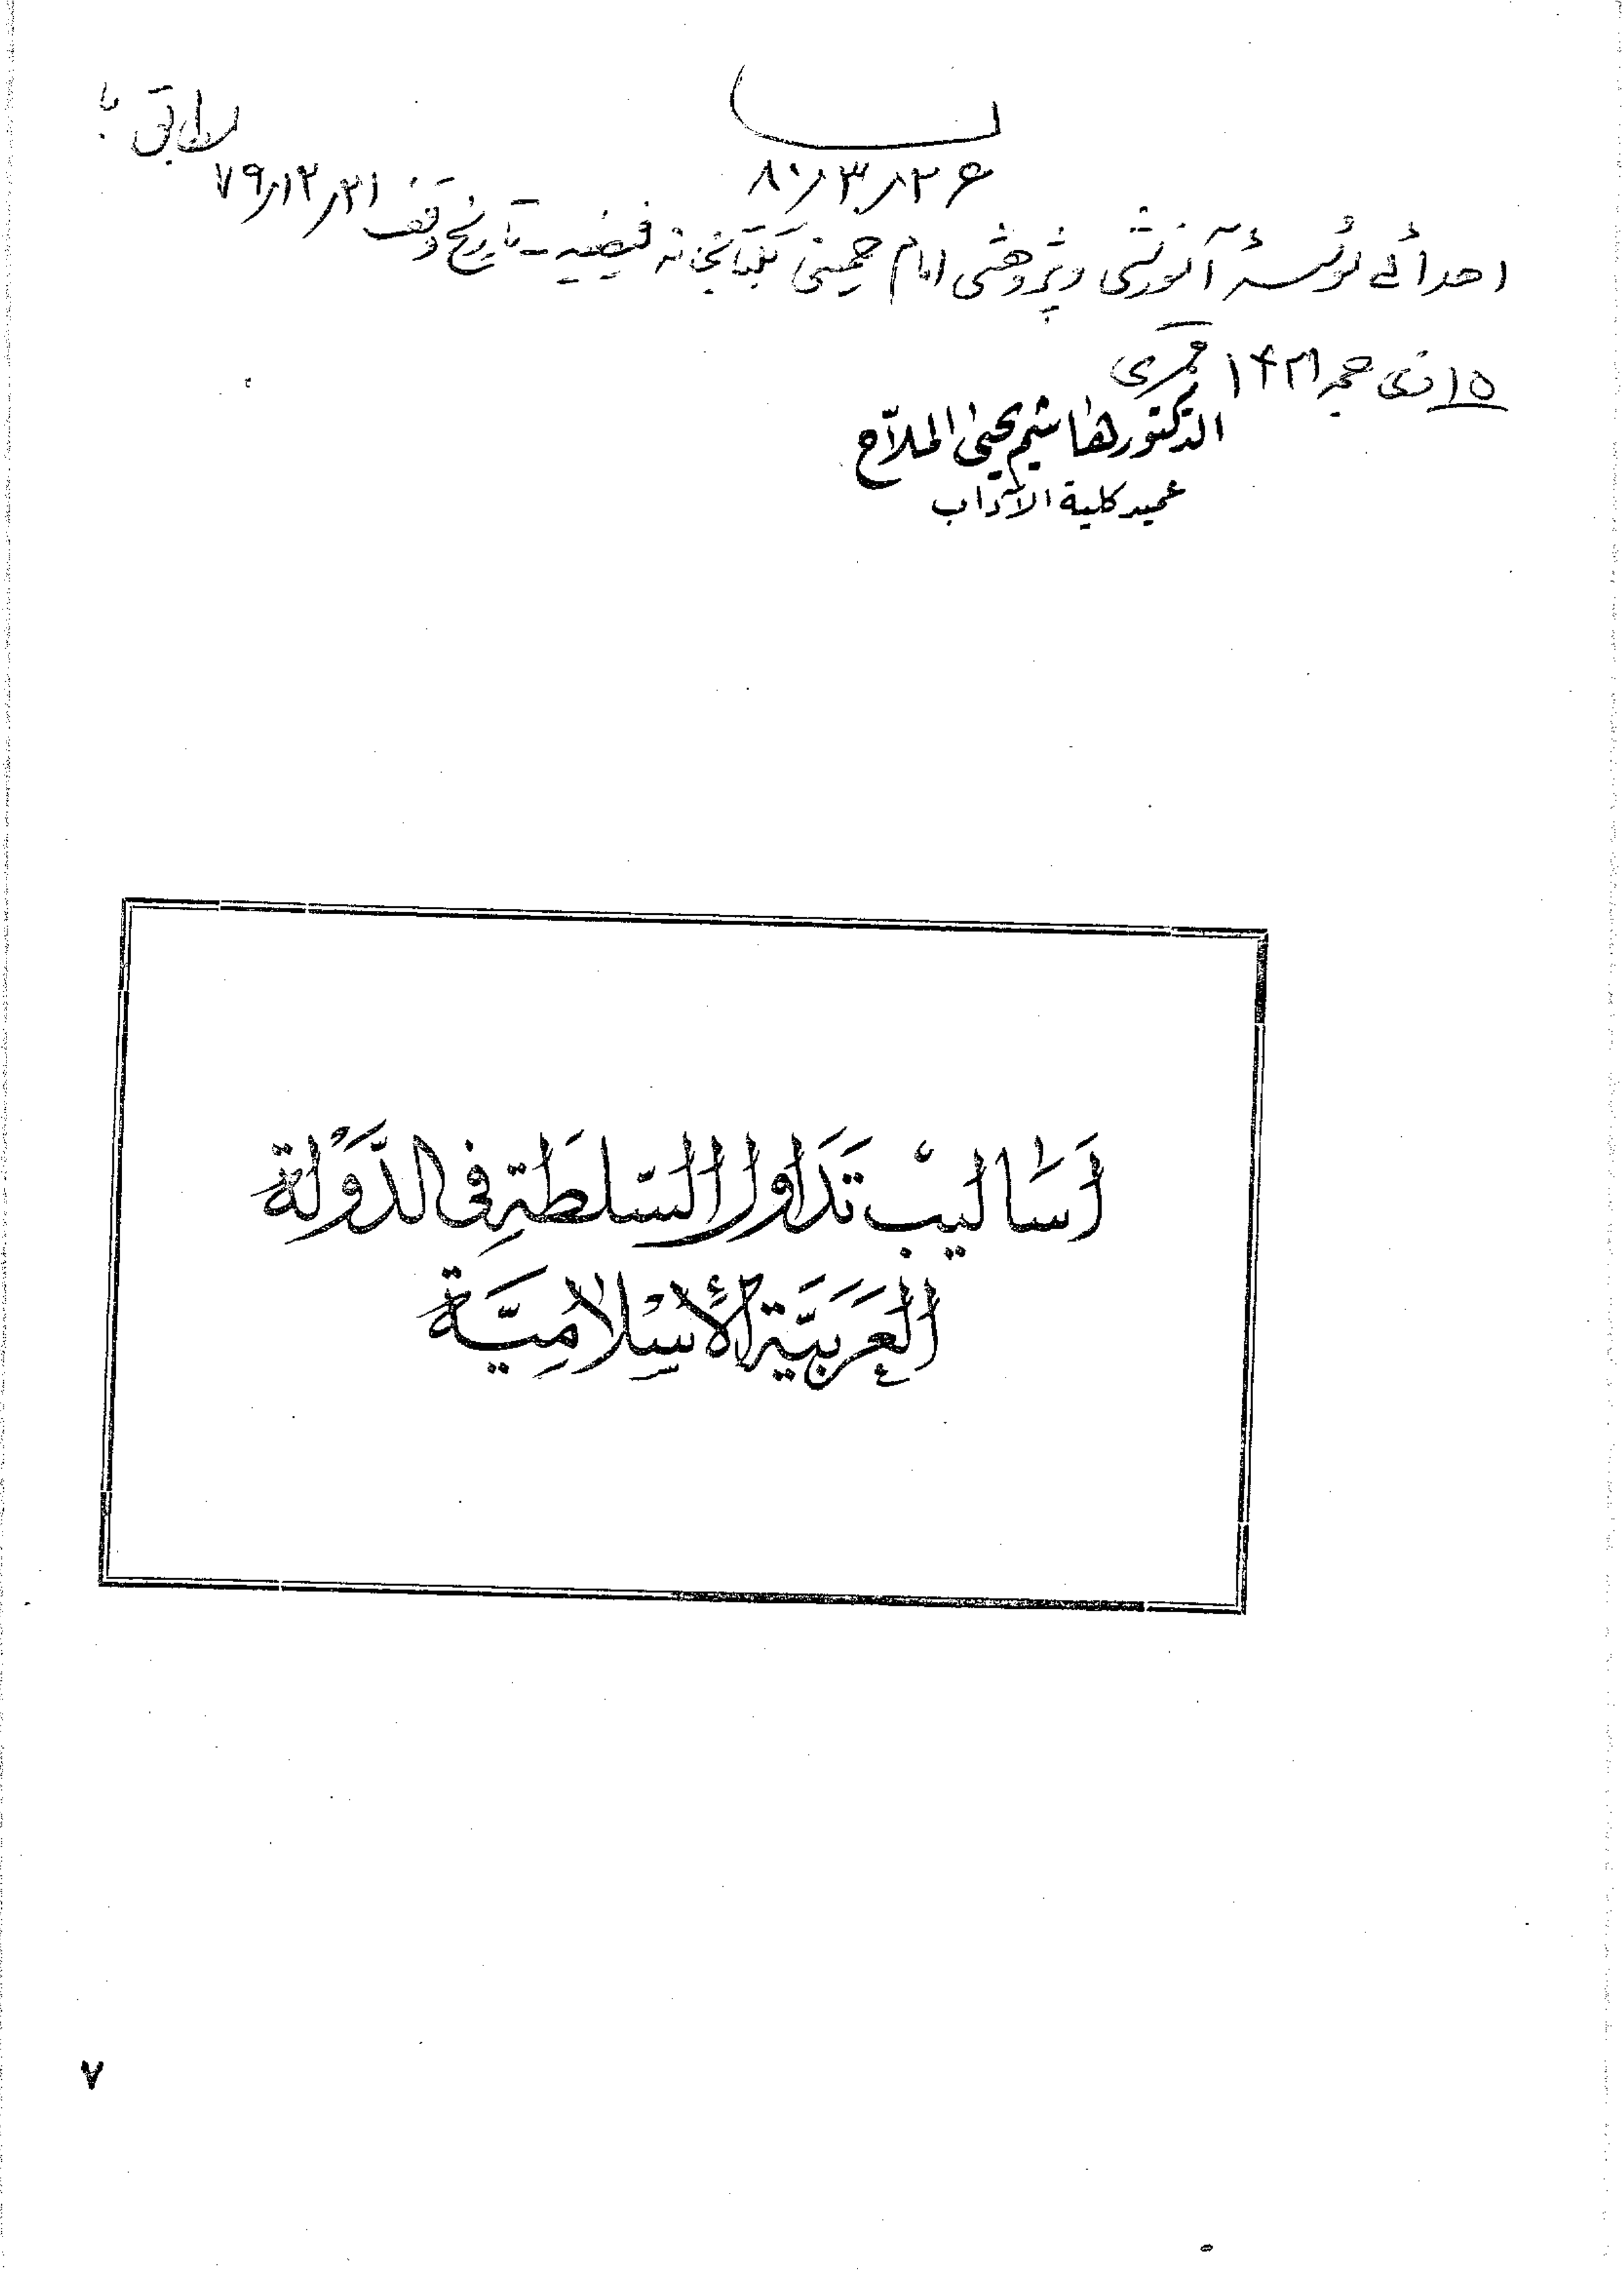 ۸۰/۳/۲۶
مطابق با
اهدائی مؤسسهٔ آموزشی و پژوهشی امام خمینی بکتابخانه فیضیه - تاریخ وقف ۷۹/۱۲/۲۱
۱۵ ذی حجه ۱۴۲۱ قمری
الدكتور هاشم يحيى الملاّح
عميد كلية الآداب
أَسَاليبْ تَدَاوِل السّلطَةِ في الدَّوْلَة
العَرَبيَّة الأِسْلامِيَّة
٧